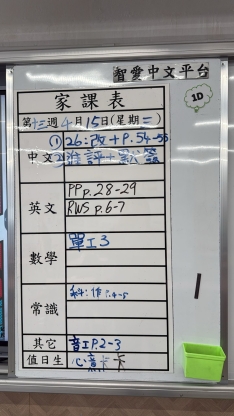 智愛中文平台
1D
家課表
第十三週 4月15日(星期二)
中文
① 26:改+P.54-55
② 進評+ 簽
英文
PP p.28-29
RWS p.6-7
數學
單工3
常識
科:作:4-5
其它
音工P.2-3
值日生
心意卡